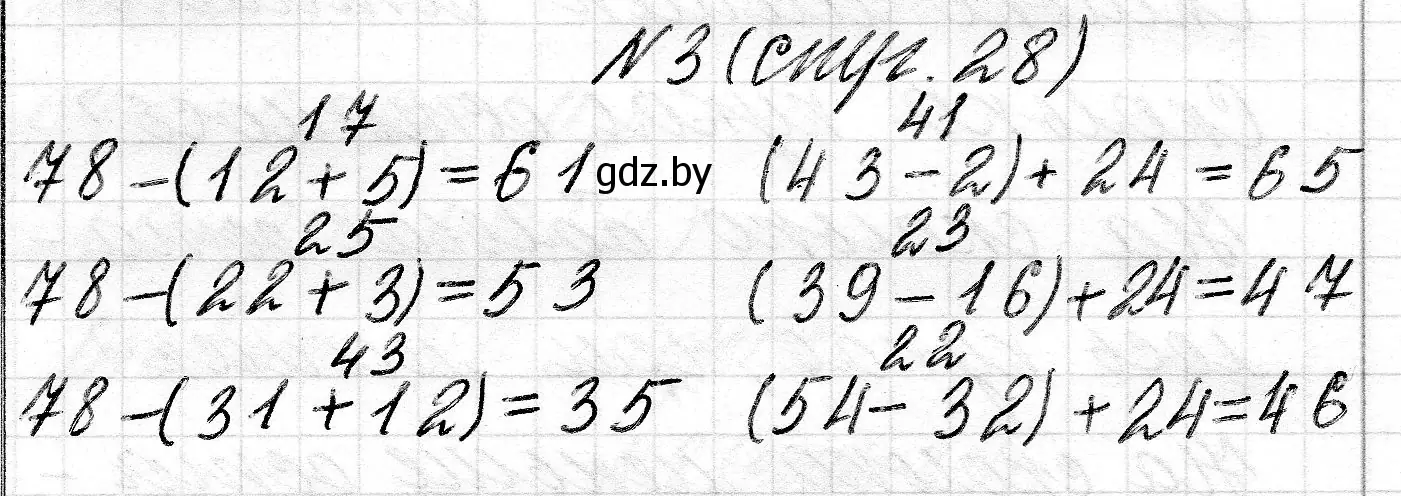 N 3 (спуг. 28)
17 41
78 - (12 + 5) = 61 gdz.by (43 - 2) + 24 = 65
25 23
78 - (22 + 3) = 53 (39 - 16) + 24 = 47
43 22
78 - (31 + 12) = 35 (54 - 32) + 24 = 46